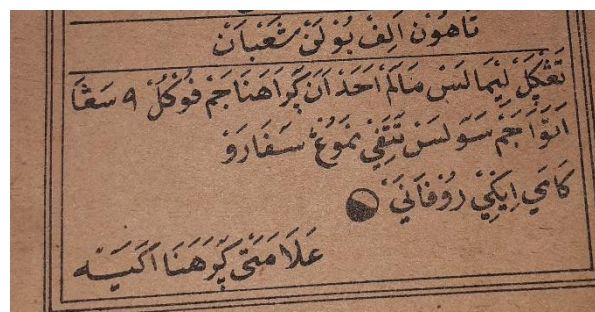 تَاهُوْن اَلِفْ بُوْلَنْ شَعْبَانْ
تَڠْݢَلْ لِيْمَا لَسْ مَالَمْ اَحَدْ اَنَ ݢْرَاهَنَا جَمْ فُوْكُلْ ٩ سَڠَا
اَتَوَا جَمْ سَوَلَسْ تَتَفِيْ نَمَوْڠْ سَفَارَوْ
كَامِي اِيْكِيْ رُوْفَانَيْ
عَلَامَتَيْ ݢْرَهَنَا اَكَيَه